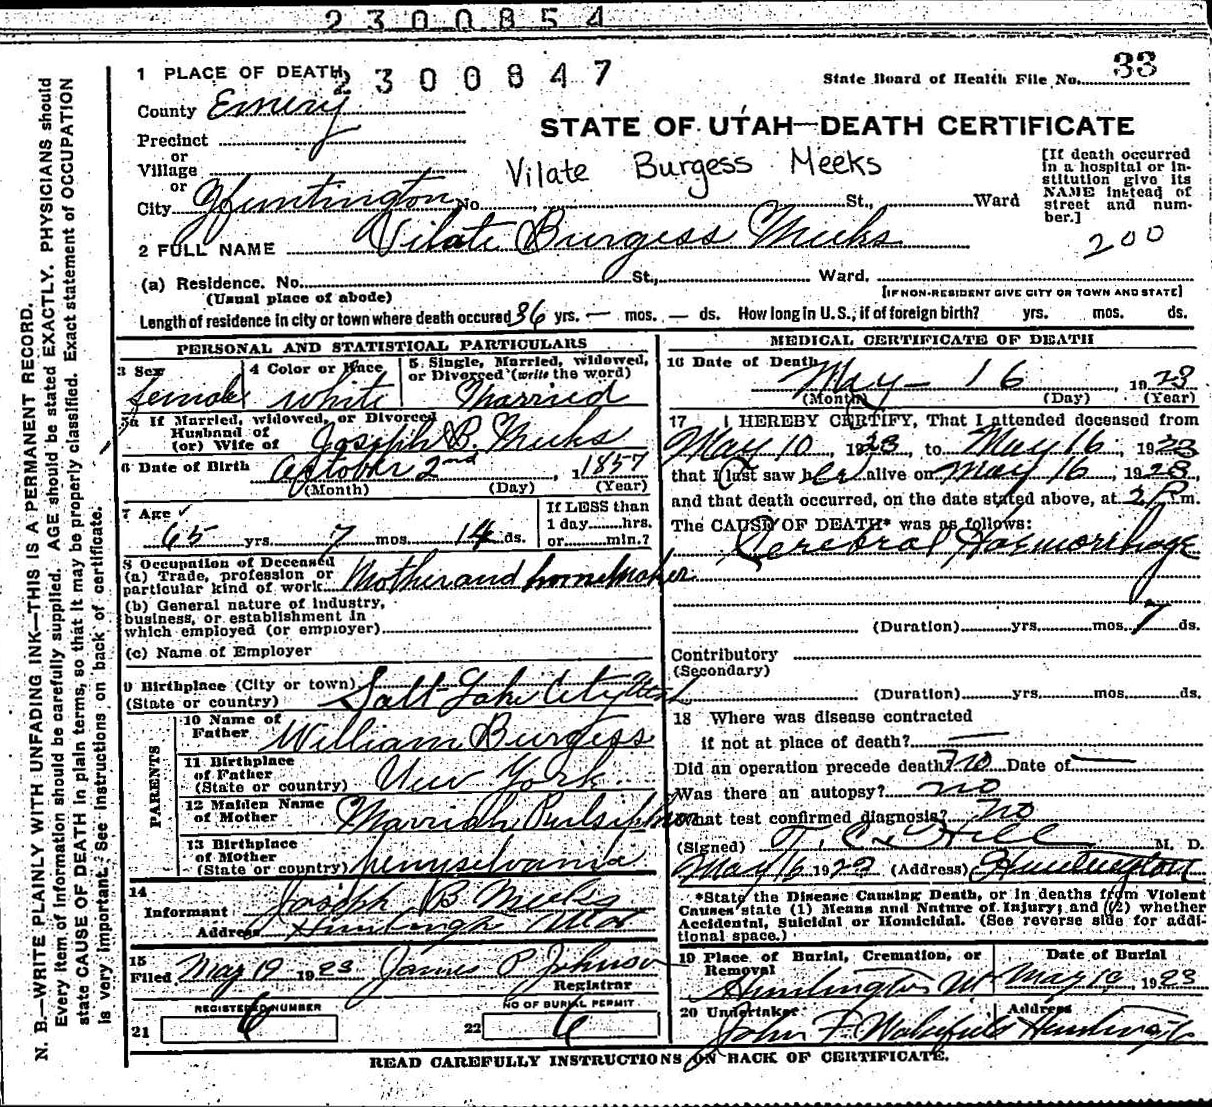 2300854
2300847
1 PLACE OF DEATH
State Board of Health File No. 33
County Emery
STATE OF UTAH—DEATH CERTIFICATE
Precinct
or
Village
or
Vilate Burgess Meeks
[If death occurred in a hospital or institution give its NAME instead of street and number.]
City Huntington No. , St., Ward
200
2 FULL NAME Vilate Burgess Meeks
(a) Residence. No. St., Ward.
(Usual place of abode)
[IF NON-RESIDENT GIVE CITY OR TOWN AND STATE]
Length of residence in city or town where death occured 36 yrs. — mos. — ds. How long in U.S., if of foreign birth? yrs. mos. ds.
PERSONAL AND STATISTICAL PARTICULARS
3 Sex
female
4 Color or Race
White
5. Single, Married, widowed,
or Divorced (write the word)
Married
5a If Married, widowed, or Divorced
Husband of
(or) Wife of Joseph B. Meeks
6 Date of Birth October 2nd, 1 1857
(Month) (Day) (Year)
7 Age
65 yrs. 7 mos. 14 ds.
If LESS than
1 day hrs.
or min.?
8 Occupation of Deceased
(a) Trade, profession or
particular kind of work Mother and homemaker
(b) General nature of industry,
business, or establishment in
which employed (or employer)
(c) Name of Employer
9 Birthplace (City or town) Salt Lake City Utah
(State or country)
PARENTS
10 Name of
Father William Burgess
11 Birthplace
of Father
(State or country) New York
12 Maiden Name
of Mother Marriah Pulsipher
13 Birthplace
of Mother
(State or country) pennsylvania
14
Informant Joseph B Meeks
Address
15
Filed May 19 1923 James P Johnson
Registrar
REGISTERED NUMBER
21 6
NO OF BURIAL PERMIT
22 6
MEDICAL CERTIFICATE OF DEATH
16 Date of Death
May — 16, 1923
(Month) (Day) (Year)
17 I HEREBY CERTIFY, That I attended deceased from
May 10, 1923, to May 16, 1923
that I last saw her alive on May 16, 1923,
and that death occurred, on the date stated above, at 2 P.m.
The CAUSE OF DEATH* was as follows:
Cerebral Haemorrhage
(Duration) yrs. mos. 7 ds.
Contributory
(Secondary)
(Duration) yrs. mos. ds.
18 Where was disease contracted
if not at place of death? —
Did an operation precede death? no Date of —
Was there an autopsy? no
What test confirmed diagnosis? no
(Signed) T. C. Hill M. D.
May 16 1923 (Address) Huntington
*State the Disease Causing Death, or in deaths from Violent
Causes state (1) Means and Nature of Injury; and (2) whether
Accidental, Suicidal or Homicidal. (See reverse side for addi-
tional space.)
19 Place of Burial, Cremation, or
Removal
Date of Burial
Huntington Ut May 19, 1923
20 Undertaker Address
John F Wakefield Huntington
READ CAREFULLY INSTRUCTIONS ON BACK OF CERTIFICATE.
N. B.—WRITE PLAINLY WITH UNFADING INK—THIS IS A PERMANENT RECORD.
Every item of information should be carefully supplied. AGE should be stated EXACTLY. PHYSICIANS should
state CAUSE OF DEATH in plain terms, so that it may be properly classified. Exact statement of OCCUPATION
is very important. See instructions on back of certificate.